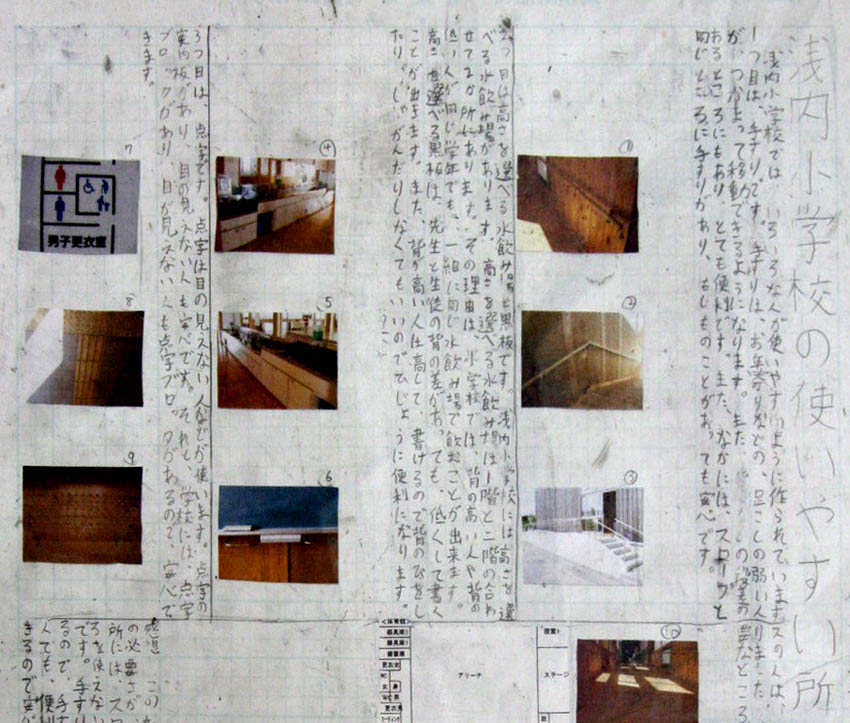 浅内小学校の使いやすい所
浅内小学校では、いろいろな人が使いやすいように作られています。
1つ目は、手すりです。手すりは、お年寄りなどの、足こしの弱い人
が、つかまって移動ができるようになります。また、
あるところにもあり、とても便利です。また、なかには、スロープと
同じところに手すりがあり、もしものことがあっても安心です。
2つ目は高さを選べる水飲み場と黒板です。浅内小学校には高さを選
べる水飲み場があります。高さを選べる水飲み場は1階と二階の合わ
せて2か所にあります。その理由は、小学校では、背の高い人や背の
低い人が同じ学年でも、一緒に同じ水飲み場で飲むことが出来ます。
高さを選べる黒板は、先生と生徒の背の差があっても、低くして書く
ことが出きます。また、背が高い人は高して、書けるので背のびをし
たり、しゃがんだりしなくてもいいのでひじょうに便利になります。
3つ目は、点字です。点字は目の見えない人などが使います。点字の
案内板があり、目の見えない人も安心です。それも、学校には、点字
ブロックがあり、目が見えない人も点字ブロックがあるので、安心で
きます。
①
②
③
④
⑤
⑥
7
男子更衣室
8
9
⑩
感想 この
の必要さが、
所には、スロ
ろを使えない
です。手すり
るので、手す
人でも、便利
きるので安心
<体育館>
器具庫
器具庫
更衣女
WC
女 身
WC 男
更衣男
アリーナ
ステージ